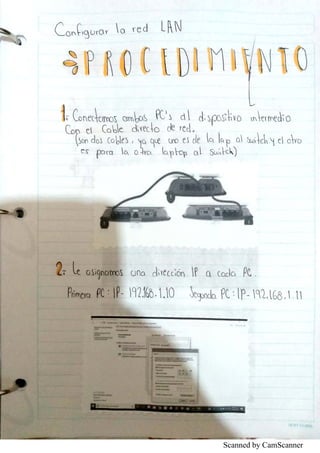 Configurar la red LAN
PROCEDIMIENTO
1: Conectamos ambos PC's al dispositivo intermedio
Con el Cable directo de red.
(son dos cables, ya que uno es de la lap al switch y el otro
es para la otra laptop al switch)
2: Le asignamos una dirección IP a cada PC.
Primera PC: IP- 192.168.1.10 Segunda PC: IP- 192.168.1.11
Scanned by CamScanner